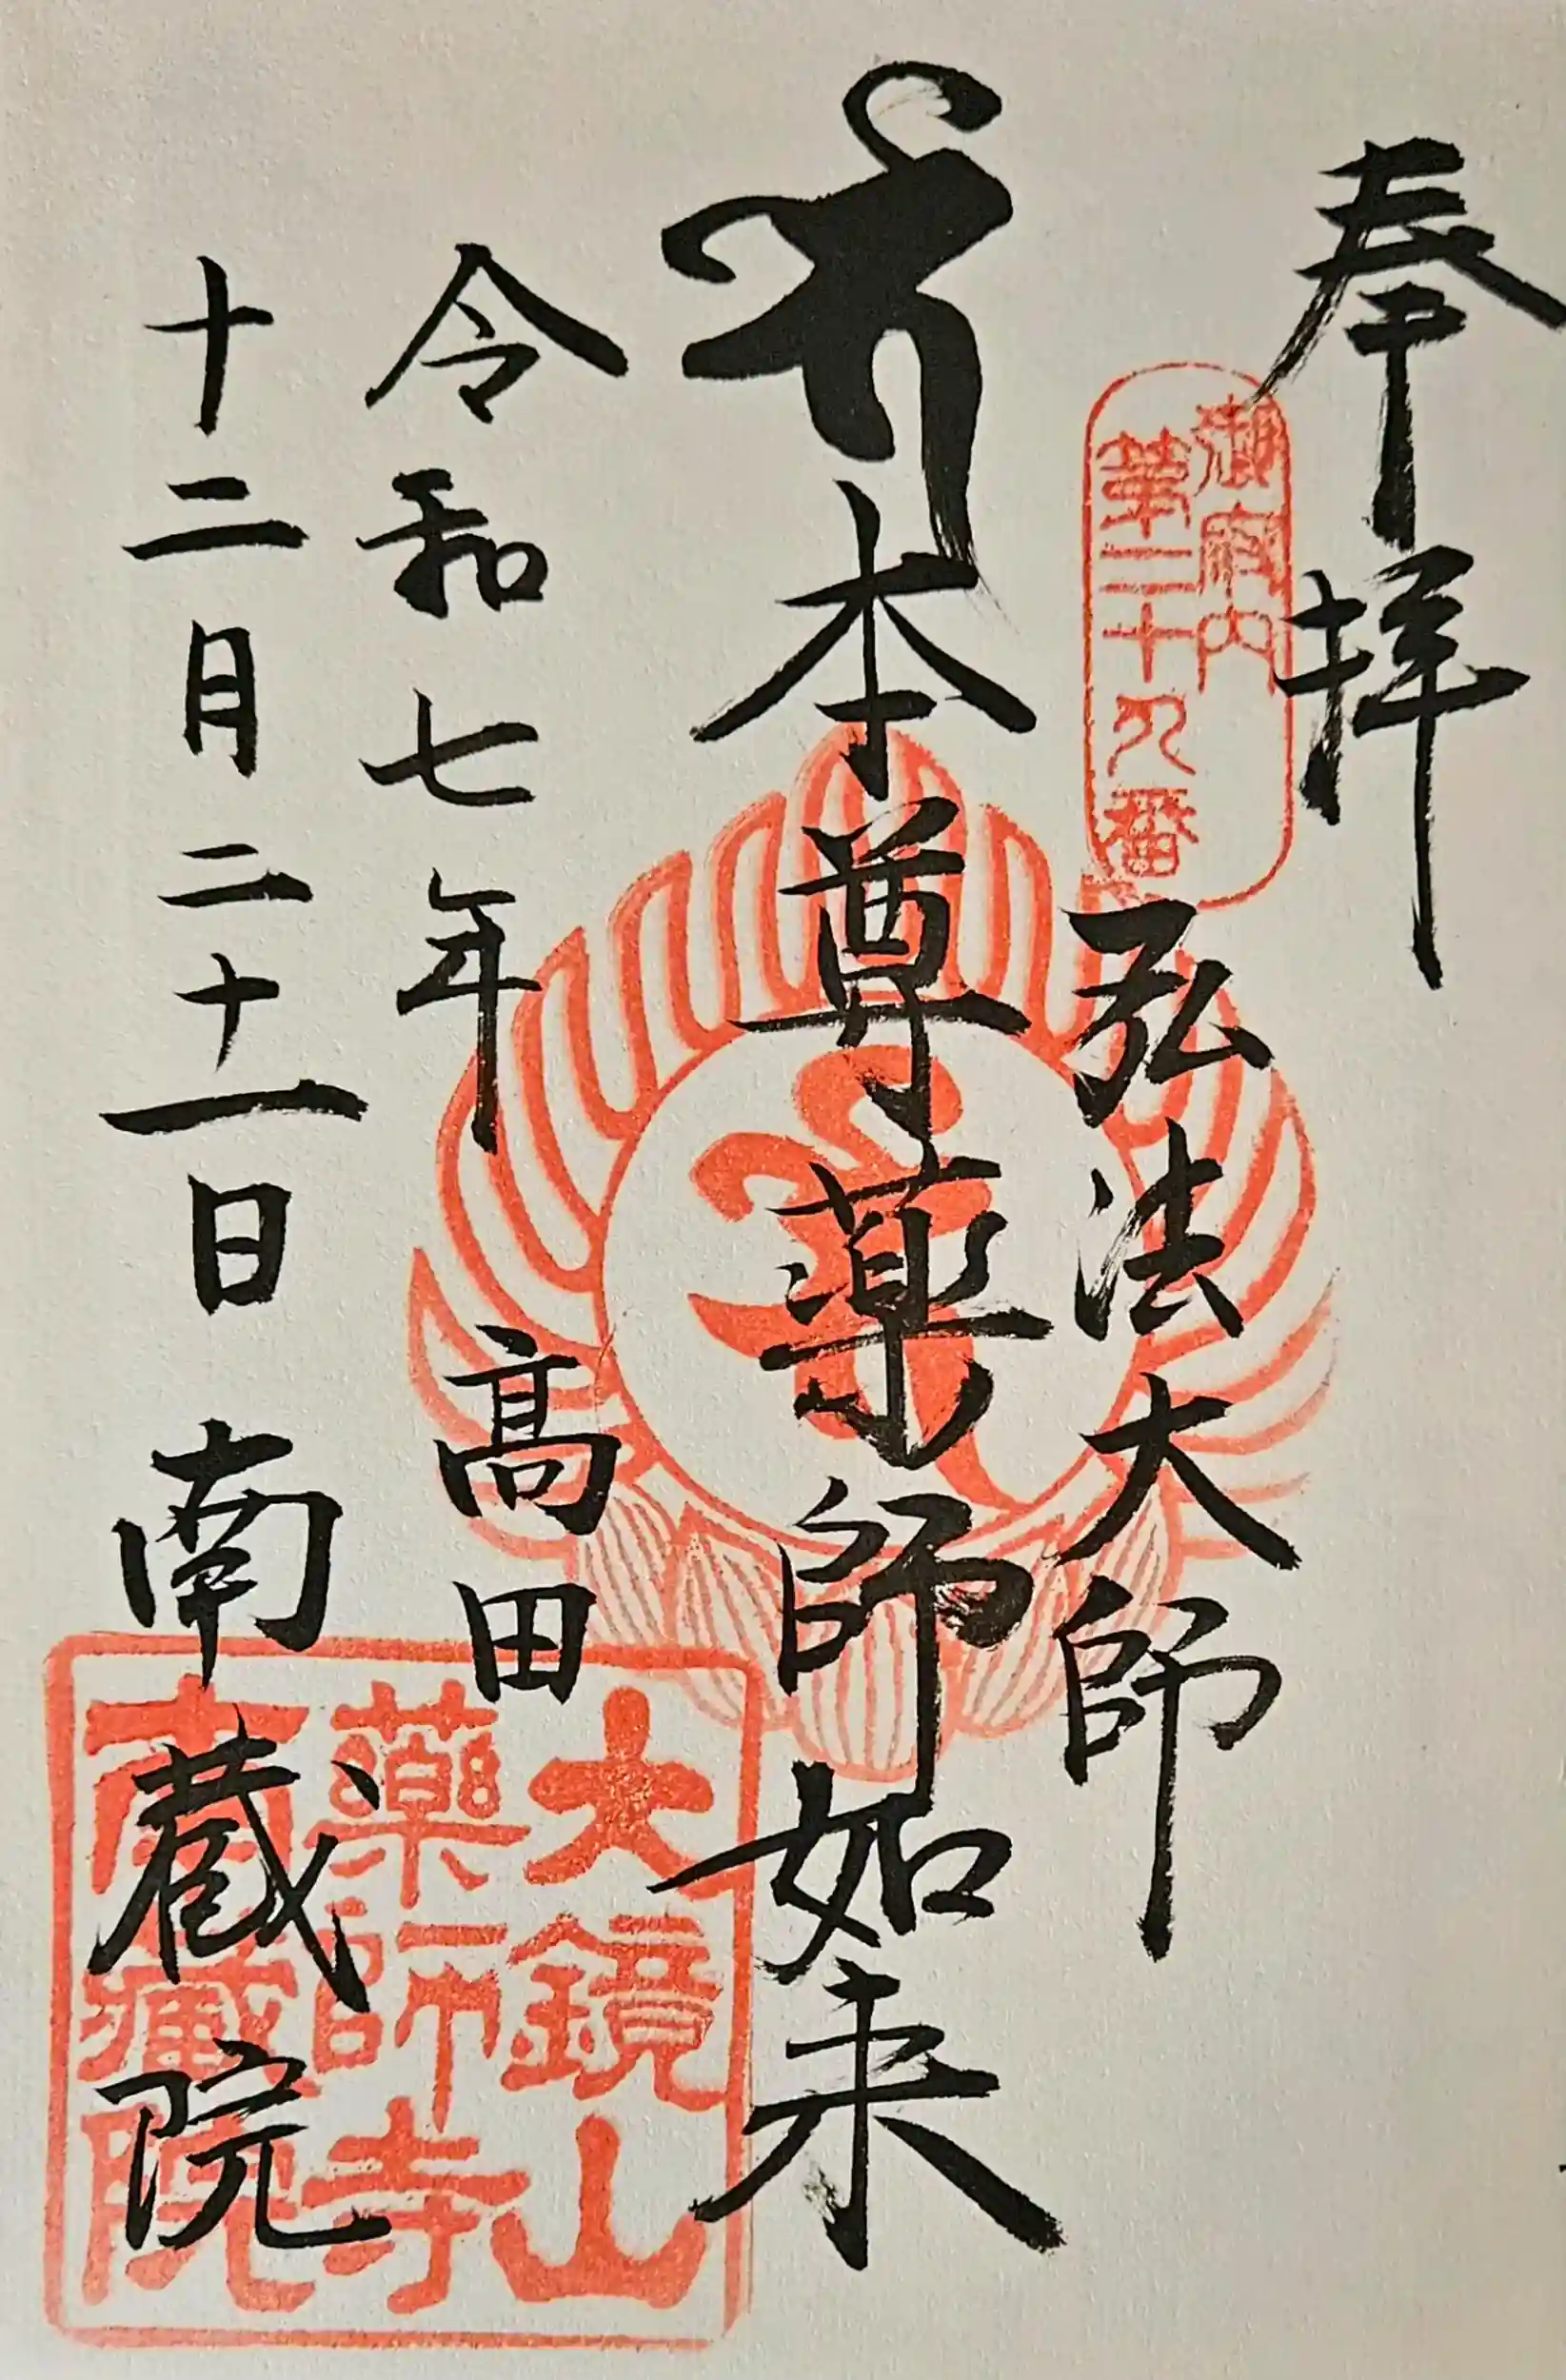 奉拝
御府内
第二十九番
弘法大師
本尊薬師如来
令和七年
高田
十二月二十一日
南蔵院
大鏡山
薬師寺
南蔵院